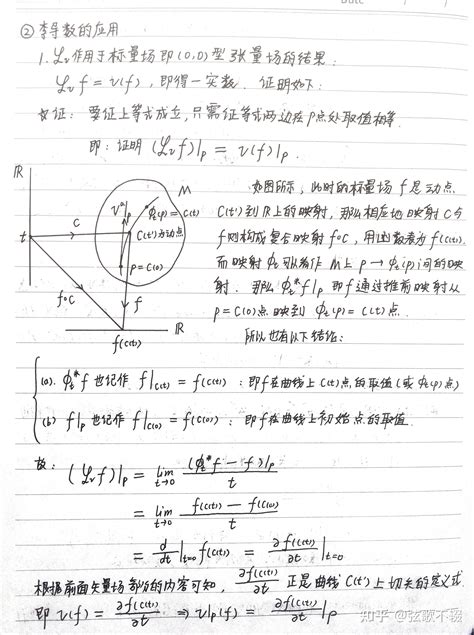 ② 李导数的应用
1. ℒᵥ作用于标量场即(0,0)型张量场的结果:
ℒᵥf = v(f), 即得一实数. 证明如下:
证: 要证上等式成立, 只需证等式两边在P点处取值相等.
即: 证明 (ℒᵥf)|ₚ = v(f)|ₚ.
ℝ
M
vᵃ|ₚ
ϕₜ(p) = C(t)
t
C
C(t)为动点
p = C(0)
f∘C
f
ℝ
f(C(t))
如图所示, 此时的标量场 f 是动点
C(t)到ℝ上的映射, 那么相应地映射C与
f 则构成复合映射 f∘C, 用函数表为 f(C(t)).
而映射 ϕₜ 可以看作 M上 p → ϕₜ(p)间的映
射. 那么 ϕₜ*f|ₚ 即 f 通过推前映射从
p = C(0)点映到 ϕₜ(p) = C(t)点.
所以也有以下结论:
(a). ϕₜ*f 也记作 f|C(t) = f(C(t)) : 即f在曲线上C(t)点的取值(或ϕₜ(p)点)
(b) f|ₚ 也记作 f|C(0) = f(C(0)) : 即f在曲线上初始点的取值.
故: (ℒᵥf)|ₚ = lim t→0 (ϕₜ*f − f)|ₚ / t
= lim t→0 (f(C(t)) − f(C(0))) / t
= d/dt|t=0 f(C(t)) = ∂f(C(t))/∂t |t=0
根据前面矢量场部分的内容可知, ∂f(C(t))/∂t 正是曲线C(t)上切矢的定义式
即 v(f) = ∂f(C(t))/∂t ⇒ v|ₚ(f) = ∂f(C(t))/∂t |ₚ
知乎 @弦歌不辍